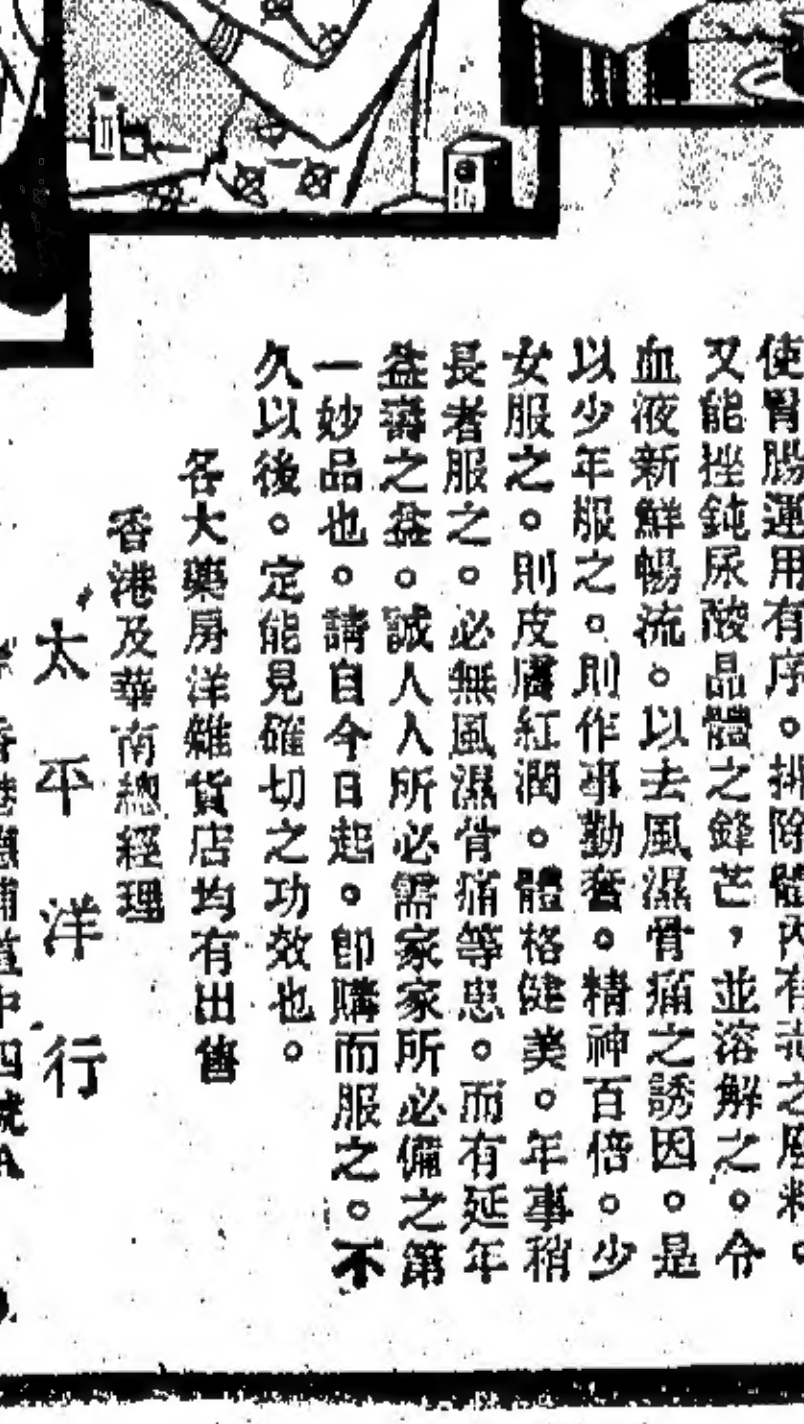 使腎腸運用有序。排除體內有毒之廢料。
又能挫鈍尿酸晶體之鋒芒，並溶解之。令
血液新鮮暢流。以去風濕骨痛之誘因。是
以少年服之。則作事勤奮。精神百倍。少
女服之。則皮膚紅潤。體格健美。年事稍
長者服之。必無風濕骨痛等患。而有延年
益壽之益。誠人人所必需家家所必備之第
一妙品也。請自今日起。即購而服之。不
久以後。定能見確切之功效也。
各大藥房洋雜貨店均有出售
香港及華南總經理
太平洋行
香港 中四號A